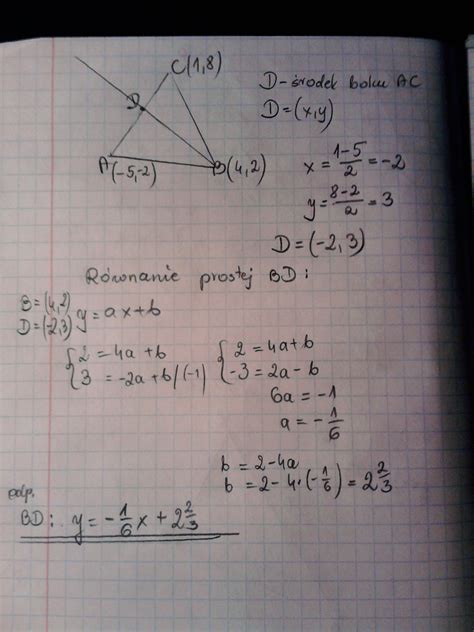 C(1,8)
D
A(-5,-2)
B(4,2)
D-środek boku AC
D=(x,y)
x = \frac{1-5}{2} = -2
y = \frac{8-2}{2} = 3
D = (-2,3)
Równanie prostej BD:
B=(4,2)
D=(-2,3)
y = ax+b
{ 2 = 4a+b
{ 3 = -2a+b /·(-1)
{ 2 = 4a+b
{ -3 = 2a-b
6a = -1
a = -\frac{1}{6}
b = 2-4a
b = 2-4·(-\frac{1}{6}) = 2\frac{2}{3}
odp.
BD: y = -\frac{1}{6}x + 2\frac{2}{3}